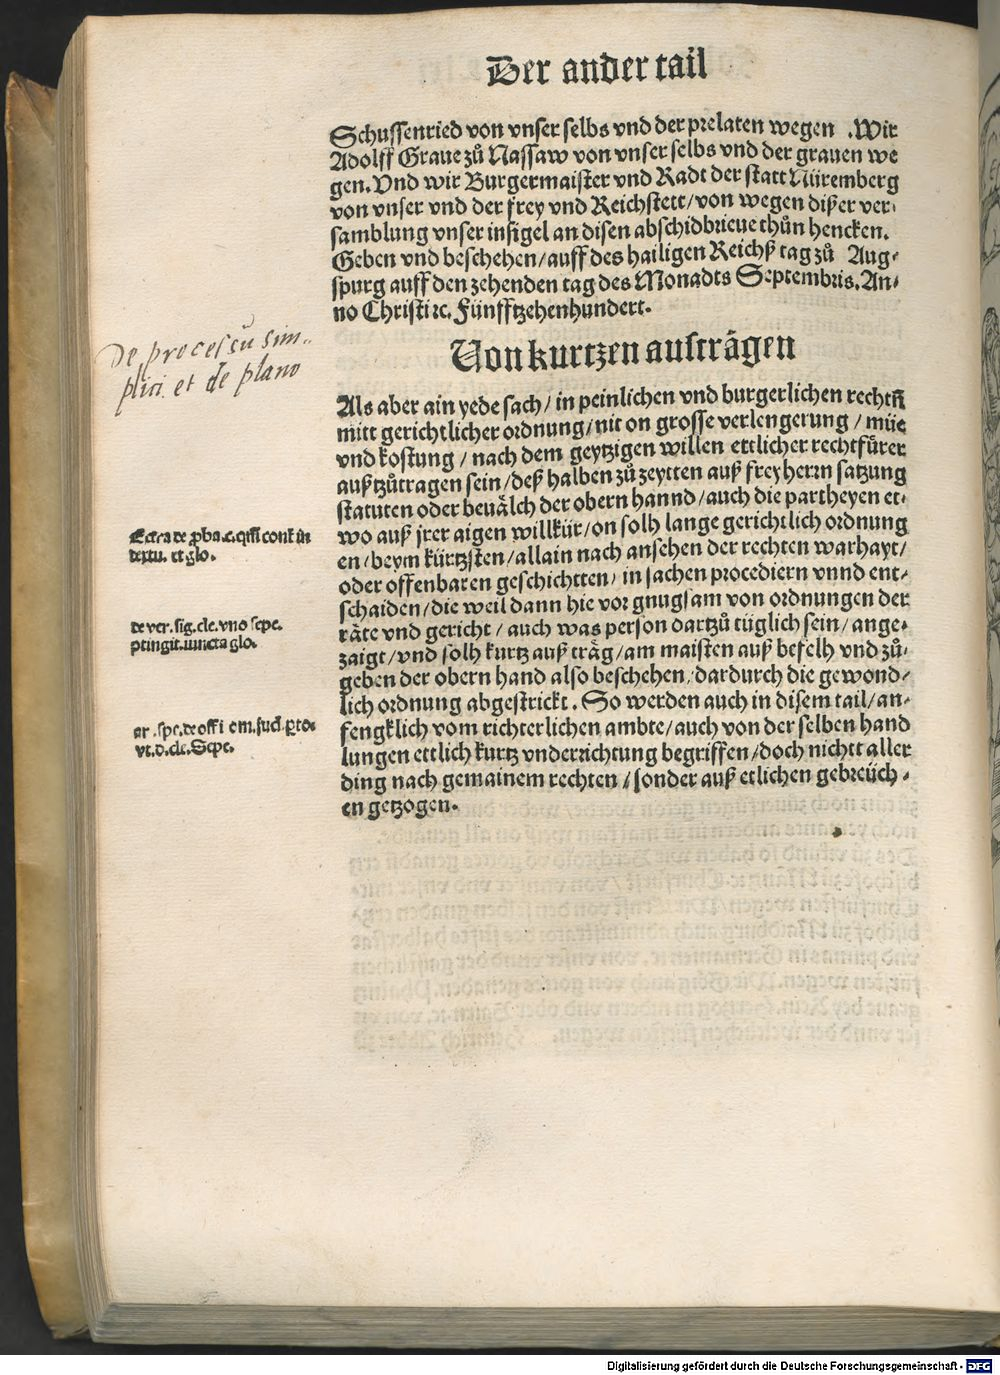 Der ander tail
Schussenried von vnser selbs vnd der prelaten wegen . Wir
Adolff Graue zů Nassaw von vnser selbs vnd der grauen we
gen. Vnd wir Burgermaister vnd Radt der statt Nüremberg
von vnser vnd der frey vnd Reichstett/ von wegen dißer ver-
samblung vnser insigel an disen abschidbrieue thůn hencken.
Geben vnd beschehen/ auff des hailigen Reichß tag zů Aug-
spurg auff den zehenden tag des Monadts Septembris. An-
no Christi ꝛc. Fünfftzehenhundert.
Von kurtzen austrägen
De processu sim-
plici et de plano
Als aber ain yede sach/ in peinlichen vnd burgerlichen rechtñ
mitt gerichtlicher ordnung/ nit on grosse verlengerung / müe
vnd kostung / nach dem geytzigen willen ettlicher rechtfürer
außtzůtragen sein/ deß halben zů zeytten auß freyherrn satzung
statuten oder beuälch der obern hannd/ auch die partheyen et-
wo auß jrer aigen willkür/ on solh lange gerichtlich ordnung
en/ beym kürtzsten/ allain nach ansehen der rechten warhayt/
oder offenbaren geschichtten/ in sachen procediern vnnd ent-
schaiden/ die weil dann hie vor gnugsam von ordnungen der
räte vnd gericht/ auch was person dartzů tüglich sein/ ange-
zaigt/ vnd solh kurtz auß träg/ am maisten auß befelh vnd zů-
geben der obern hand also beschehen/ dardurch die gewond-
lich ordnung abgestrickt . So werden auch in disem tail/ an-
fengklich vom richterlichen ambte/ auch von der selben hand
lungen ettlich kurtz vnderrichtung begriffen/ doch nichtt aller
ding nach gemainem rechten / sonder auß etlichen gebreüch-
en getzogen.
Extra de ꝓba. c. qm̄ cont̄ in
textu. et glo.
de ver. sig. cle. vno sepe.
ꝑtingit. iuncta glo.
ar. spe. de offi
vt. d. cle. Sepe.
Digitalisierung gefördert durch die Deutsche Forschungsgemeinschaft - DFG